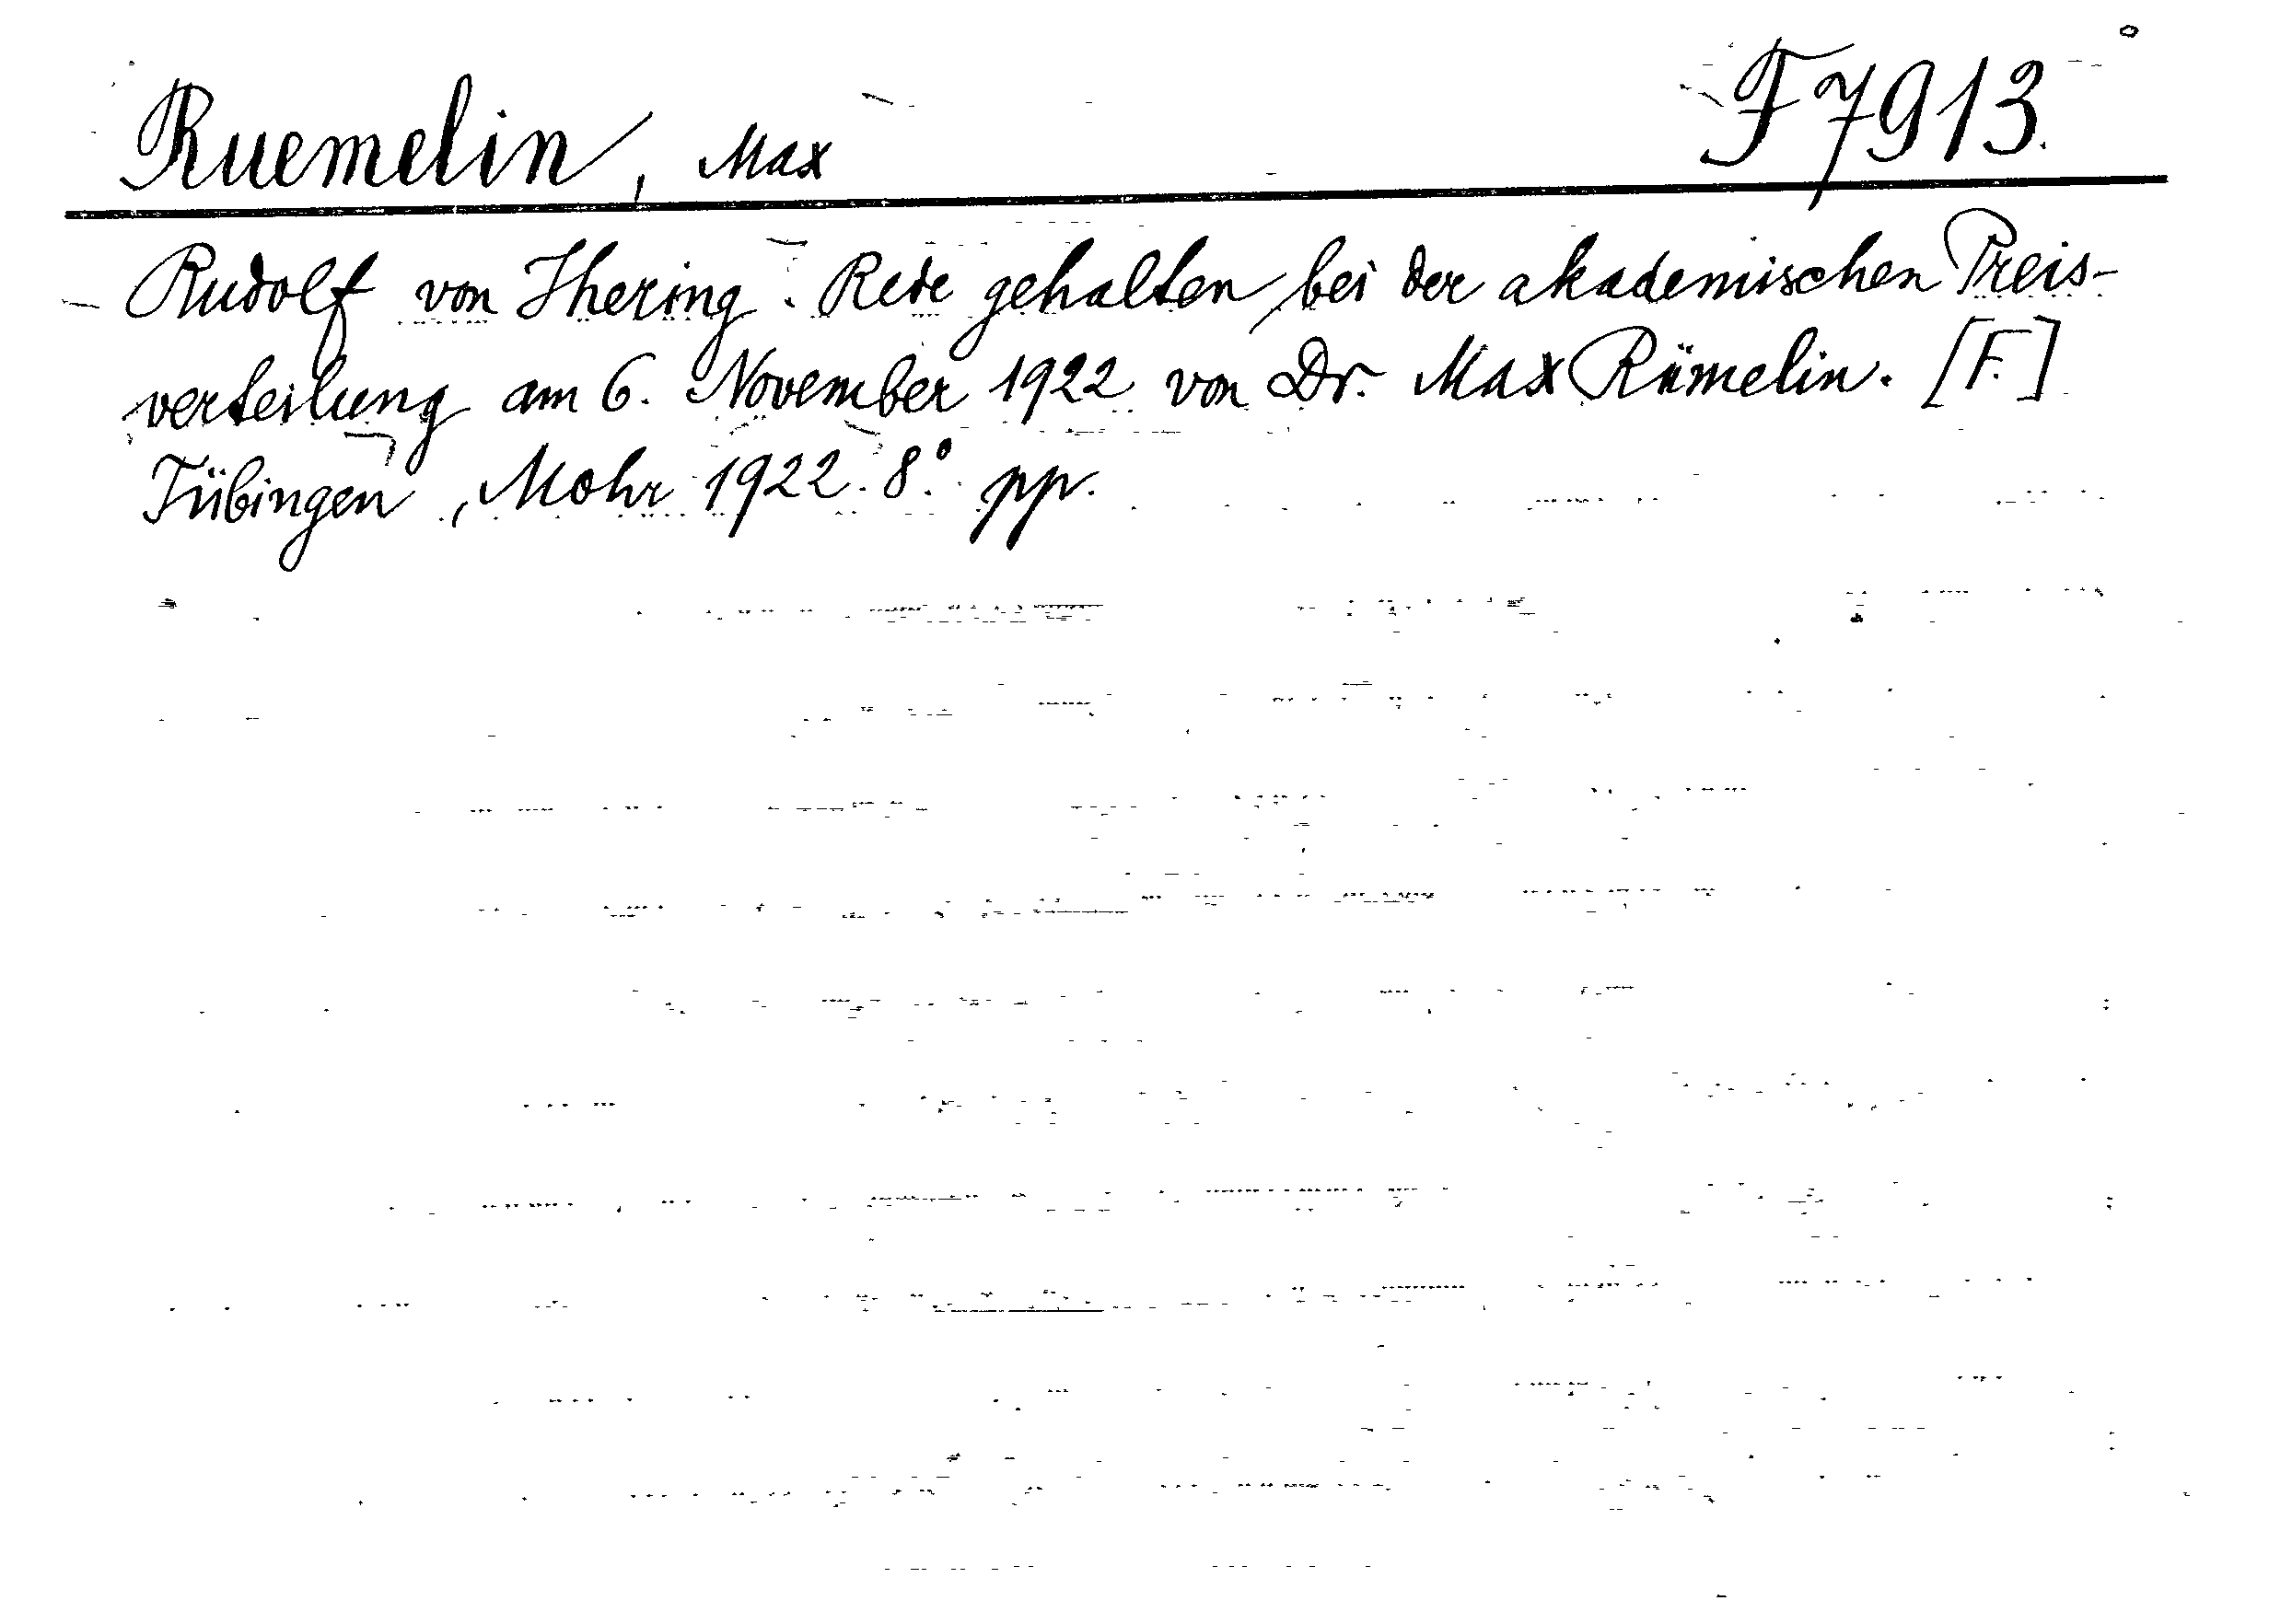 Ruemelin, Max F 7913.
Rudolf von Ihering. Rede gehalten bei der akademischen Preis-
verteilung am 6. November 1922 von Dr. Max Rümelin. [F.]
Tübingen, Mohr 1922. 8° pp.